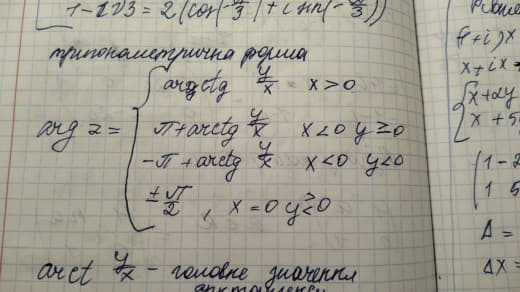 1-i√3 = 2(cos(-π/3)+i sin(-π/3))
тригонометрична форма
arg z = { arctg y/x = x>0
π+arctg y/x x<0 y≥0
-π+arctg y/x x<0 y<0
±π/2, x=0 y≷0
arct y/x - головне значення
арктангенсу
(1+i)x
x+ix=
x+2y
x+5
1-2
1 5
Δ=
Δx=